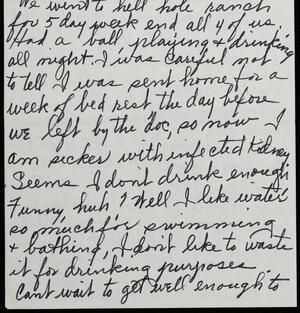 We went to hell hole ranch
for 5 day week end all 4 of us.
Had a ball playing & drinking
all night. I was careful not
to tell I was sent home for a
week of bed rest the day before
we left by the doc, so now I
am sicker with infected kidney
Seems I don't drink enough
Funny, huh? Well I like water
so much for swimming
& bathing, I don't like to waste
it for drinking purposes
Can't wait to get well enough to